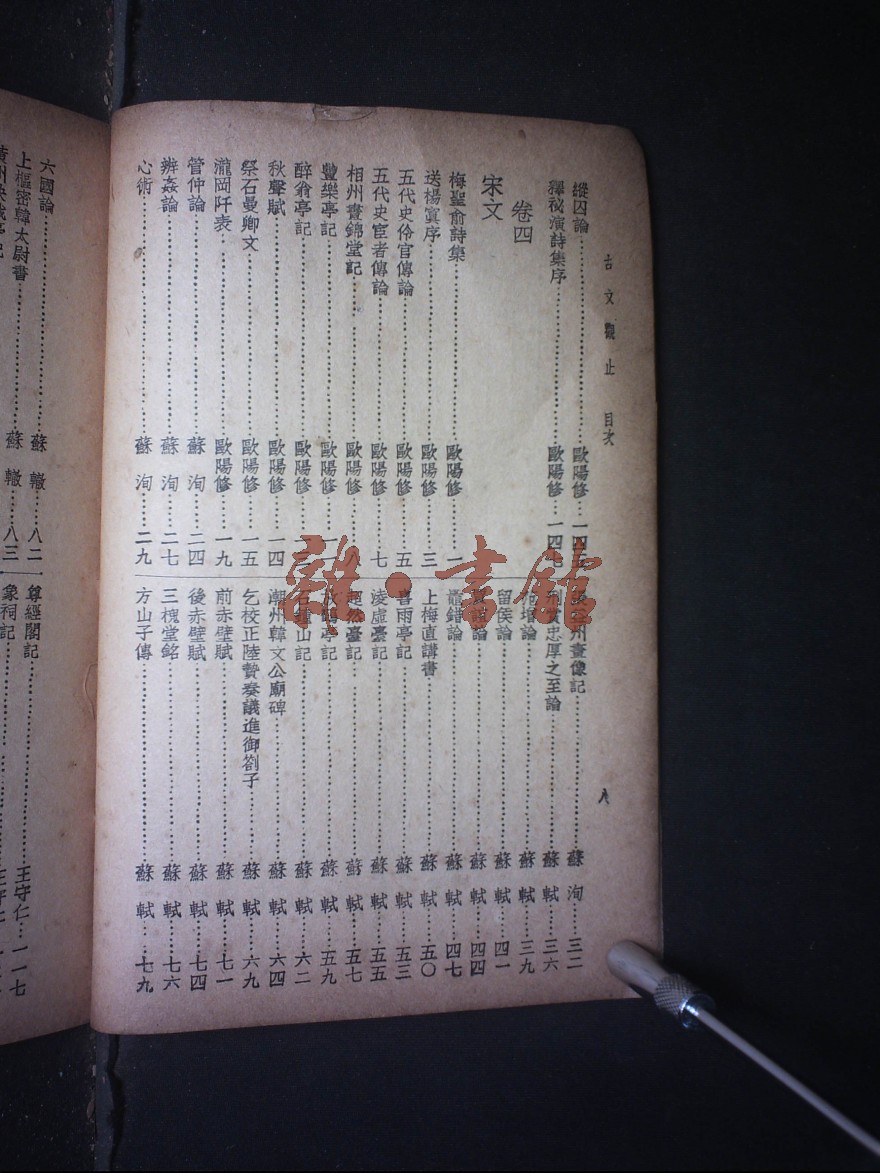 古文觀止 目次
八
縱囚論 歐陽修 一四五
釋祕演詩集序 歐陽修 一四七
卷四
宋文
梅聖俞詩集 歐陽修 一
送楊寘序 歐陽修 三
五代史伶官傳論 歐陽修 五
五代史宦者傳論 歐陽修 七
相州晝錦堂記 歐陽修 八
豐樂亭記 歐陽修 一一
醉翁亭記 歐陽修
秋聲賦 歐陽修 一四
祭石曼卿文 歐陽修 一五
瀧岡阡表 歐陽修 一九
管仲論 蘇洵 二四
辨姦論 蘇洵 二七
心術 蘇洵 二九
州畫像記 蘇洵 三二
刑賞忠厚之至論 蘇軾 三六
論 蘇軾 三九
留侯論 蘇軾 四一
論 蘇軾 四四
鼂錯論 蘇軾 四七
上梅直講書 蘇軾 五〇
喜雨亭記 蘇軾 五三
淩虛臺記 蘇軾 五五
超然臺記 蘇軾 五七
亭記 蘇軾 五九
石鐘山記 蘇軾 六二
潮州韓文公廟碑 蘇軾 六四
乞校正陸贄奏議進御劄子 蘇軾 六九
前赤壁賦 蘇軾 七一
後赤壁賦 蘇軾 七四
三槐堂銘 蘇軾 七六
方山子傳 蘇軾 七九
六國論 蘇轍 八二
上樞密韓太尉書 蘇轍 八三
尊經閣記 王守仁 一一七
象祠記
雜·書館